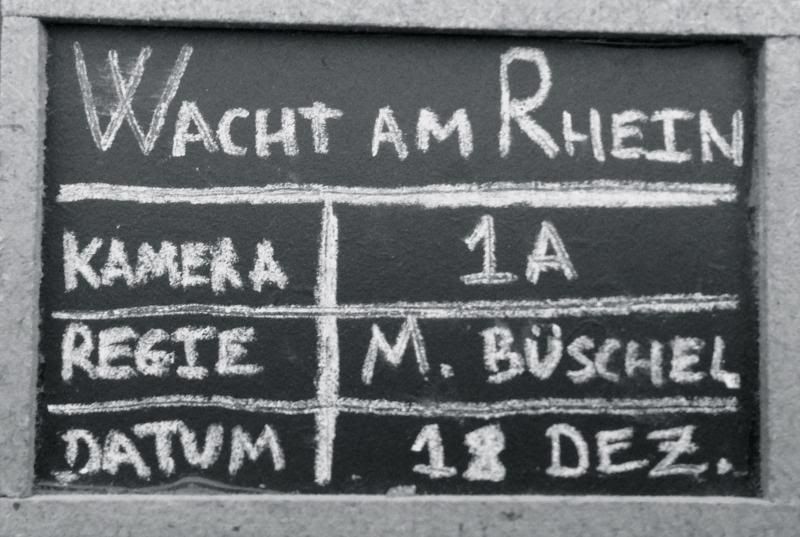 WACHT AM RHEIN
KAMERA 1A
REGIE M. BÜSCHEL
DATUM 18 DEZ.